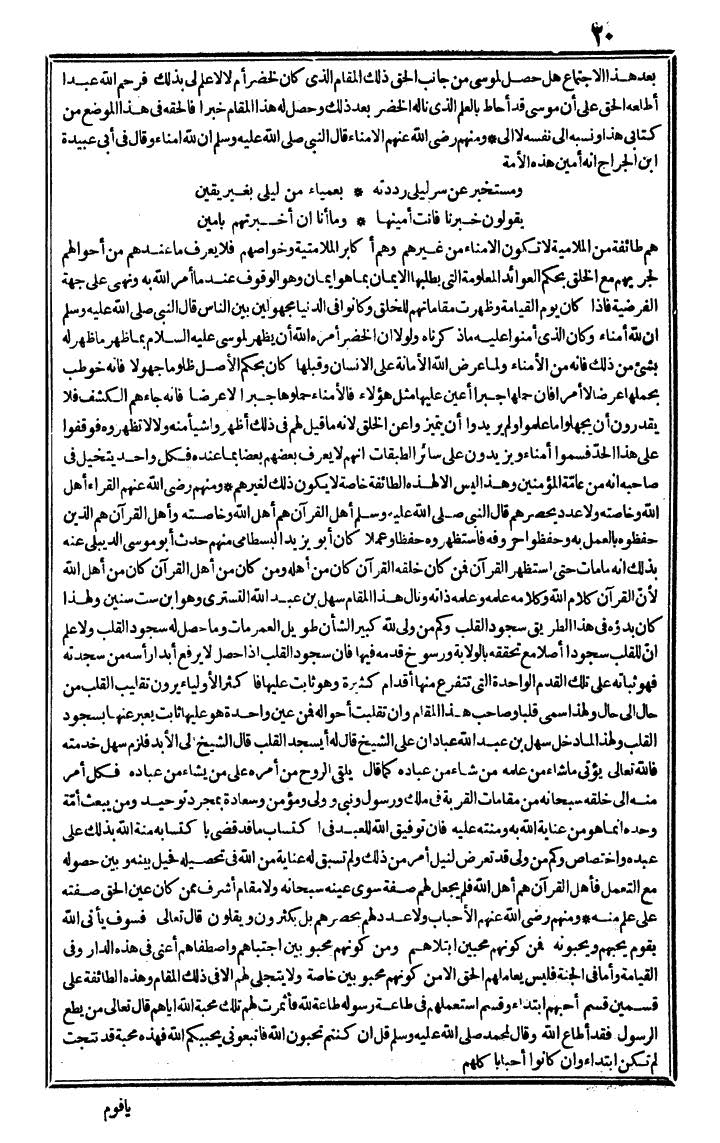 ٢٠
بعد هذا الاجتماع هل حصل لموسى من جانب الحق ذلك المقام الذى كان لخضر أم لا لا علم لى بذلك فرحم الله عبدا
أطلعه الحق على أن موسى قد أحاط بالعلم الذى ناله الخضر بعد ذلك وحصل له هذا المقام خبرا فألحقه فى هذا الموضع من
كتابى هذا ونسبه الى نفسه لا الى * ومنهم رضى الله عنهم الامناء قال النبي صلى الله عليه وسلم ان لله امناء وقال فى أبى عبيدة
ابن الجراح انه أمين هذه الأمة
ومستخبر عن سر ليلى رددته * بعمياء من ليلى بغير يقين
يقولون خبرنا فانت أمينها * وما أنا ان أخبرتهم بامين
هم طائفة من الملامية لا تكون الامناء من غيرهم وهم أكابر الملامتية وخواصهم فلا يعرف ما عندهم من أحوالهم
لجريهم مع الخلق بحكم العوائد المعلومة التى يطلبها الايمان بما هو ايمان وهو الوقوف عند ما أمر الله به ونهى على جهة
الفرضية فاذا كان يوم القيامة وظهرت مقاماتهم للخلق وكانوا فى الدنيا مجهولين بين الناس قال النبي صلى الله عليه وسلم
ان لله أمناء وكان الذى أمنوا عليه ماذكرناه ولولا ان الخضر أمره الله أن يظهر لموسى عليه السلام بما ظهر ما ظهر له
بشئ من ذلك فانه من الأمناء ولما عرض الله الأمانة على الانسان وقبلها كان بحكم الأصل ظلوما جهولا فانه خوطب
بحملها عرضا لا أمرا فان حملها جبرا أعين عليها مثل هؤلاء فالأمناء حملوها جبرا لا عرضا فانه جاءهم الكشف فلا
يقدرون أن يجهلوا ما علموا ولم يريدوا أن يتميزوا عن الخلق لانه ما قيل لهم فى ذلك أظهروا شيأ منه ولا لا تظهروه فوقفوا
على هذا الحد فسموا أمناء ويزيدون على سائر الطبقات انهم لا يعرف بعضهم بعضا بما عنده فكل واحد يتخيل فى
صاحبه انه من عامة المؤمنين وهذا ليس الا لهذه الطائفة خاصة لا يكون ذلك لغيرهم * ومنهم رضى الله عنهم القراء أهل
الله وخاصته ولا عدد يحصرهم قال النبي صلى الله عليه وسلم أهل القرآن هم أهل الله وخاصته وأهل القرآن هم الذين
حفظوه بالعمل به وحفظوا حروفه فاستظهروه حفظا وعملا كان أبو يزيد البسطامى منهم حدث أبو موسى الديبلى عنه
بذلك انه مامات حتى استظهر القرآن فمن كان خلقه القرآن كان من أهله ومن كان من أهل القرآن كان من أهل الله
لأن القرآن كلام الله وكلامه علمه وعلمه ذاته ونال هذا المقام سهل بن عبد الله التسترى وهو ابن ست سنين ولهذا
كان بدؤه فى هذا الطريق سجود القلب وكم من ولى لله كبير الشأن طويل العمر مات وما حصل له سجود القلب ولا علم
ان للقلب سجودا أصلا مع تحققه بالولاية ورسوخ قدمه فيها فان سجود القلب اذا حصل لا يرفع أبدا رأسه من سجدته
فهو ثباته على تلك القدم الواحدة التى تتفرع منها أقدام كثيرة وهو ثابت عليها فأكثر الأولياء يرون تقليب القلب من
حال الى حال ولهذا سمى قلبا وصاحب هذا المقام وان تقلبت أحواله فمن عين واحدة هو عليها ثابت يعبر عنها بسجود
القلب ولهذا لما دخل سهل بن عبد الله عبادان على الشيخ قال له أيسجد القلب قال الشيخ الى الأبد فلزم سهل خدمته
فالله تعالى يؤتى ماشاء من علمه من شاء من عباده كما قال يلقى الروح من أمره على من يشاء من عباده فكل أمر
منه الى خلقه سبحانه من مقامات القربة فى ملك ورسول ونبى وولى ومؤمن وسعادة بمجرد توحيد ومن يبعث أمة
وحده انما هو من عناية الله به ومنته عليه فان توفيق الله للعبد فى اكتساب ما قد قضى باكتسابه منة الله بذلك على
عبده واختصاص وكم من ولى قد تعرض لنيل أمر من ذلك ولم تسبق له عناية من الله فى تحصيله فحيل بينه وبين حصوله
مع التعمل فأهل القرآن هم أهل الله فلم يجعل لهم صفة سوى عينه سبحانه ولا مقام أشرف ممن كان عين الحق صفته
على علم منه * ومنهم رضى الله عنهم الأحباب ولا عدد لهم يحصرهم بل يكثرون ويقلون قال تعالى فسوف يأتى الله
بقوم يحبهم ويحبونه فمن كونهم محبين ابتلاهم ومن كونهم محبوبين اجتباهم واصطفاهم أعنى فى هذه الدار وفى
القيامة وأما فى الجنة فليس يعاملهم الحق الا من كونهم محبوبين خاصة ولا يتجلى لهم الا فى ذلك المقام وهذه الطائفة على
قسمين قسم أحبهم ابتداء وقسم استعملهم فى طاعة رسوله طاعة لله فأثمرت لهم تلك محبة الله اياهم قال تعالى من يطع
الرسول فقد أطاع الله وقال لمحمد صلى الله عليه وسلم قل ان كنتم تحبون الله فاتبعونى يحببكم الله فهذه محبة قد نتجت
لم تكن ابتداء وان كانوا أحبابا كلهم
يا قوم